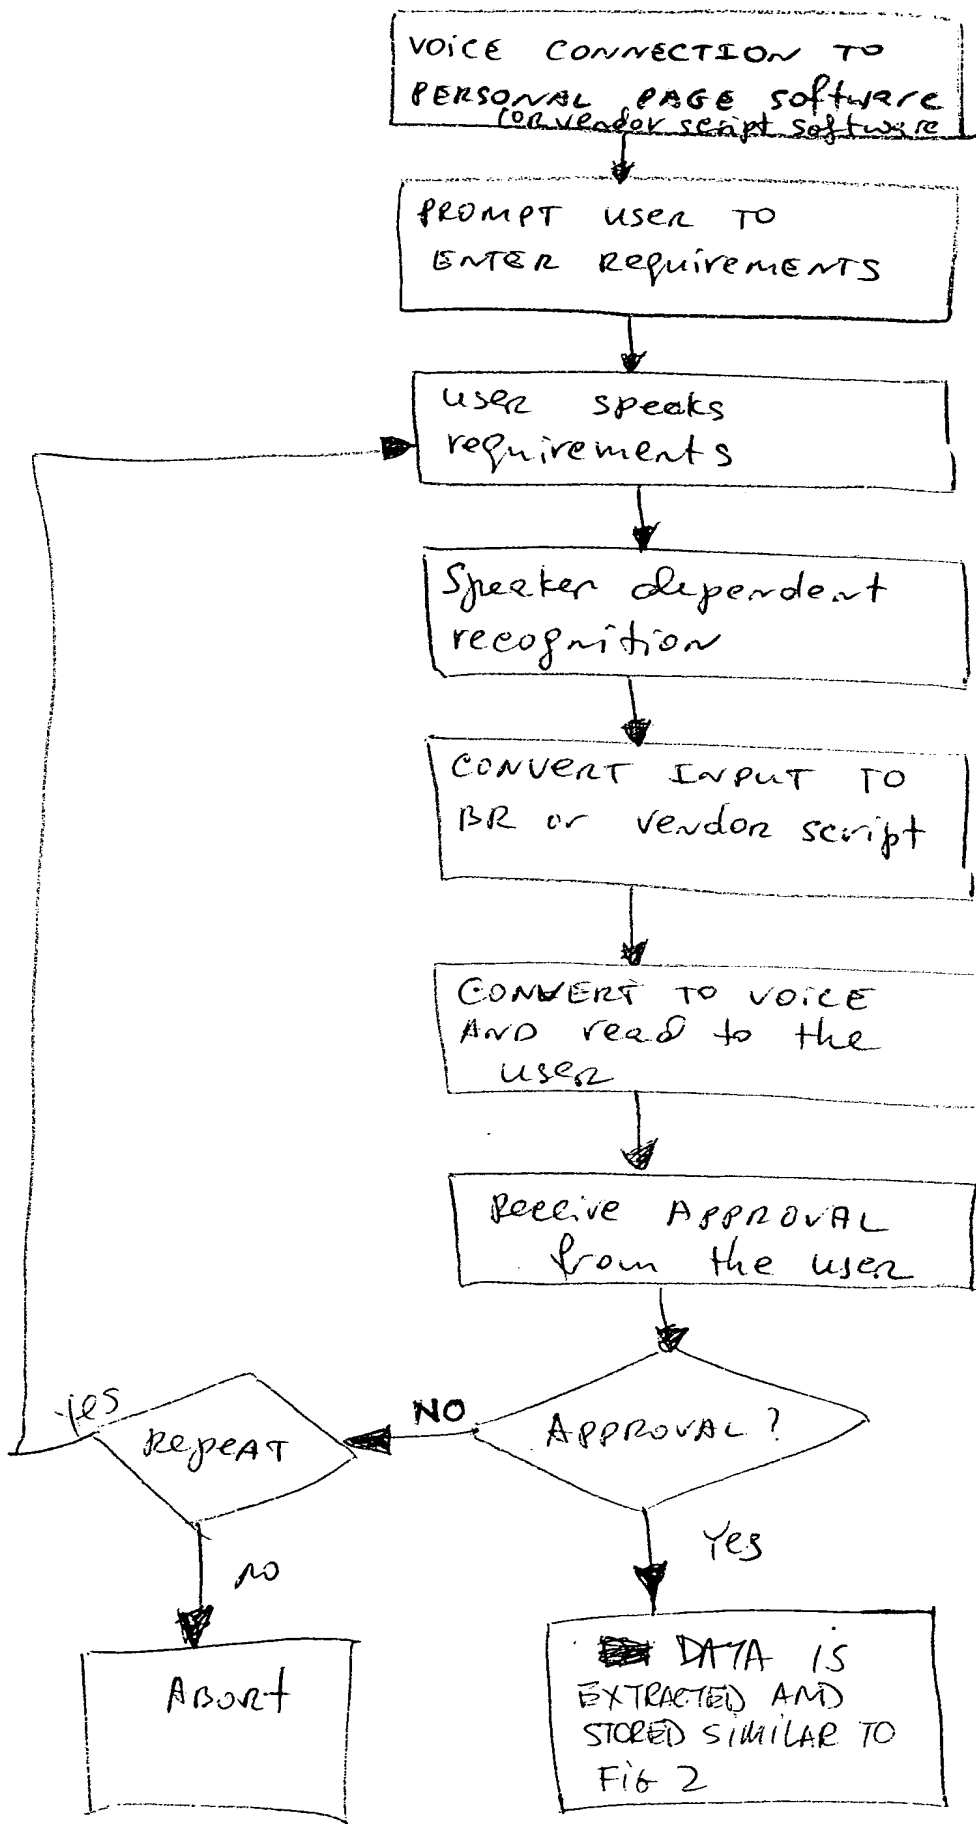 VOICE CONNECTION TO
PERSONAL PAGE software
(OR vendor script software
PROMPT USER TO
ENTER REQUIREMENTS
USER speaks
requirements
Speaker dependent
recognition
CONVERT INPUT TO
BR or vendor script
CONVERT TO VOICE
AND read to the
user
Receive APPROVAL
from the user
APPROVAL?
NO
Repeat
yes
no
Yes
Abort
DATA IS
EXTRACTED AND
STORED SIMILAR TO
FIG 2